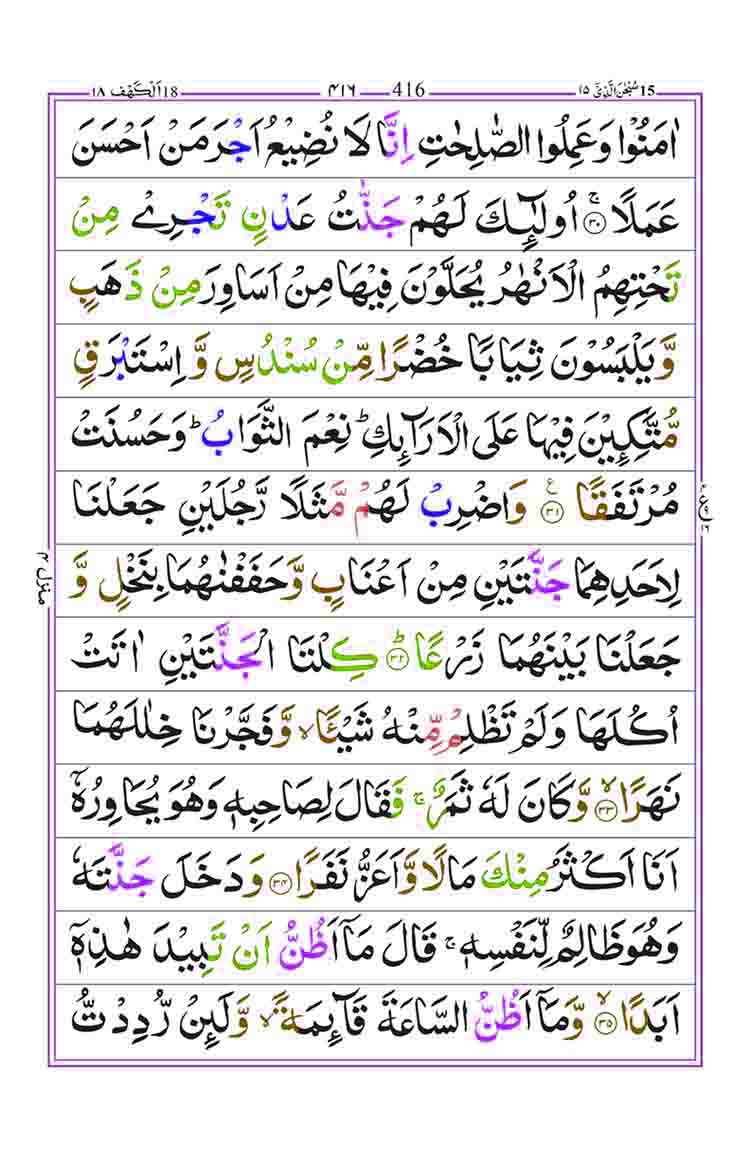 15 سُبْحٰنَ الَّذِیْٓ ۱۵ 416 ۴۱۶ 18 اَلْكَهْف ۱۸
اٰمَنُوْا وَعَمِلُوا الصّٰلِحٰتِ اِنَّا لَا نُضِیْعُ اَجْرَ مَنْ اَحْسَنَ
عَمَلًا ۚ﴿۳۰﴾ اُولٰٓئِكَ لَهُمْ جَنّٰتُ عَدْنٍ تَجْرِیْ مِنْ
تَحْتِهِمُ الْاَنْهٰرُ یُحَلَّوْنَ فِیْهَا مِنْ اَسَاوِرَ مِنْ ذَهَبٍ
وَّیَلْبَسُوْنَ ثِیَابًا خُضْرًا مِّنْ سُنْدُسٍ وَّ اِسْتَبْرَقٍ
مُّتَّكِـِٕیْنَ فِیْهَا عَلَی الْاَرَآئِكِ ؕ نِعْمَ الثَّوَابُ ؕ وَحَسُنَتْ
مُرْتَفَقًا ﴿۳۱﴾ ع وَاضْرِبْ لَهُمْ مَّثَلًا رَّجُلَیْنِ جَعَلْنَا
لِاَحَدِهِمَا جَنَّتَیْنِ مِنْ اَعْنَابٍ وَّحَفَفْنٰهُمَا بِنَخْلٍ وَّ
جَعَلْنَا بَیْنَهُمَا زَرْعًا ؕ﴿۳۲﴾ كِلْتَا الْجَنَّتَیْنِ اٰتَتْ
اُكُلَهَا وَلَمْ تَظْلِمْ مِّنْهُ شَیْـًٔا ۙ وَّفَجَّرْنَا خِلٰلَهُمَا
نَهَرًا ۙ﴿۳۳﴾ وَّكَانَ لَهٗ ثَمَرٌ ۚ فَقَالَ لِصَاحِبِهٖ وَهُوَ یُحَاوِرُهٗۤ
اَنَا اَكْثَرُ مِنْكَ مَالًا وَّاَعَزُّ نَفَرًا ﴿۳۴﴾ وَدَخَلَ جَنَّتَهٗ
وَهُوَ ظَالِمٌ لِّنَفْسِهٖ ۚ قَالَ مَاۤ اَظُنُّ اَنْ تَبِیْدَ هٰذِهٖۤ
اَبَدًا ۙ﴿۳۵﴾ وَّمَاۤ اَظُنُّ السَّاعَةَ قَآئِمَةً ۙ وَّلَئِنْ رُّدِدْتُّ
منزل ۴